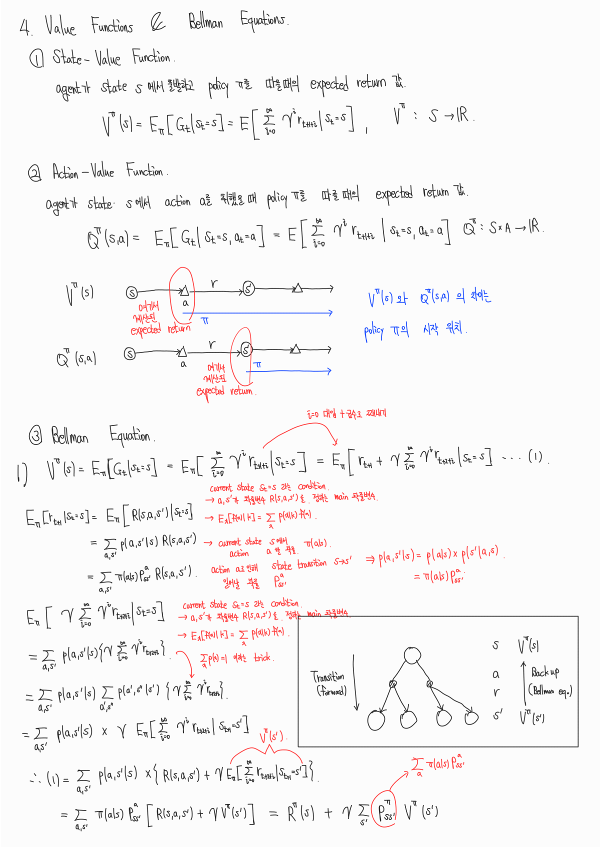 4. Value Functions & Bellman Equations.
① State-Value Function.
agent가 state s에서 출발하고 policy π를 따를때의 expected return 값.
V^π(s) = E_π[G_t|s_t=s] = E[∑_{i=0}^∞ γ^i r_{t+1+i} | s_t=s] , V^π : S → ℝ.
② Action-Value Function.
agent가 state s에서 action a를 취했을 때 policy π를 따를 때의 expected return 값.
Q^π(s,a) = E_π[G_t | s_t=s, a_t=a] = E[∑_{i=0}^∞ γ^i r_{t+1+i} | s_t=s, a_t=a] Q^π : S×A → ℝ.
V^π(s) s a r s'
여기서 계산된 expected return
π
V^π(s) 와 Q^π(s,a) 의 차이는
policy π의 시작 위치.
Q^π(s,a) s a r s'
여기서 계산된 expected return.
π
③ Bellman Equation.
i=0 대입 +
1) V^π(s) = E_π[G_t|s_t=s] = E_π[∑_{i=0}^∞ γ^i r_{t+1+i} | s_t=s] = E_π[r_{t+1} + γ ∑_{i=0}^∞ γ^i r_{t+1+i} | s_t=s] ··· (1).
current state s_t=s 라는 condition.
→ a, s'가 확률변수 R(s,a,s')을 정하는 main 확률변수
E_π[r_{t+1}|s_t=s] = E_π[R(s,a,s')|s_t=s]
→ E_x[f(x)|k] = ∑ p(x|k) f(x).
= ∑_{a,s'} p(a,s'|s) R(s,a,s')
→ current state s에서 action a 할 확률 π(a|s)
= ∑_{a,s'} π(a|s) P^a_{ss'} R(s,a,s').
action a로 인해 state transition s→s' 일어날 확률 P^a_{ss'}
⇒ p(a,s'|s) = p(a|s) × p(s'|a,s)
= π(a|s) P^a_{ss'}
E_π[γ ∑_{i=0}^∞ γ^i r_{t+1+i} | s_t=s]
current state s_t=s 라는 condition.
→ a, s'가 확률변수 R(s,a,s')을 정하는 main 확률변수
→ E_x[f(x)|k] = ∑ p(x|k) f(x).
= ∑_{a,s'} p(a,s'|s) {γ ∑_{i=0}^∞ γ^i r_{t+1+i}}.
∑ p(x)=1 이라는 trick.
= ∑_{a,s'} p(a,s'|s) ∑_{a',s''} p(a',s''|s') {γ ∑_{i=0}^∞ γ^i r_{t+1+i}}.
= ∑_{a,s'} p(a,s'|s) × γ E_π[∑_{i=0}^∞ γ^i r_{t+1+i} | s_{t+1}=s']
Transition (forward)
s V^π(s)
a Back up
r (Bellman eq.)
s' V^π(s')
V^π(s')
∴ (1) = ∑_{a,s'} p(a,s'|s) × {R(s,a,s') + γ E_π[∑_{i=0}^∞ γ^i r_{t+1+i} | s_{t+1}=s']}.
∑_a π(a|s) P^a_{ss'}
= ∑_{a,s'} π(a|s) P^a_{ss'} [R(s,a,s') + γ V^π(s')] = R^π(s) + γ ∑_{s'} P^π_{ss'} V^π(s')